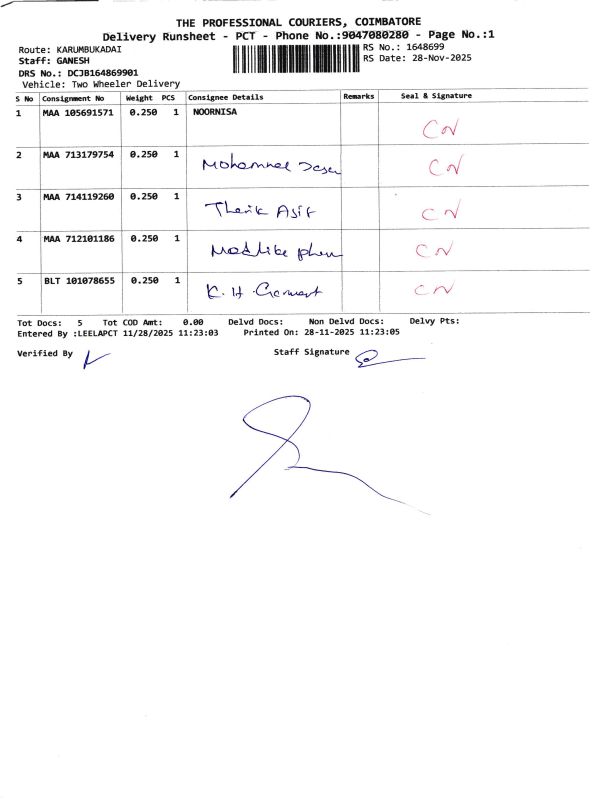 THE PROFESSIONAL COURIERS, COIMBATORE
Delivery Runsheet - PCT - Phone No.:9047080280 - Page No.:1
Route: KARUMBUKADAI RS No.: 1648699
Staff: GANESH RS Date: 28-Nov-2025
DRS No.: DCJB164869901
Vehicle: Two Wheeler Delivery
S No Consignment No Weight PCS Consignee Details Remarks Seal & Signature
1 MAA 105691571 0.250 1 NOORNISA CN
2 MAA 713179754 0.250 1 Mohammed CN
3 MAA 714119260 0.250 1 Tharik Asif CN
4 MAA 712101186 0.250 1 CN
5 BLT 101078655 0.250 1 K. H. Garment CN
Tot Docs: 5 Tot COD Amt: 0.00 Delvd Docs: Non Delvd Docs: Delvy Pts:
Entered By :LEELAPCT 11/28/2025 11:23:03 Printed On: 28-11-2025 11:23:05
Verified By Staff Signature